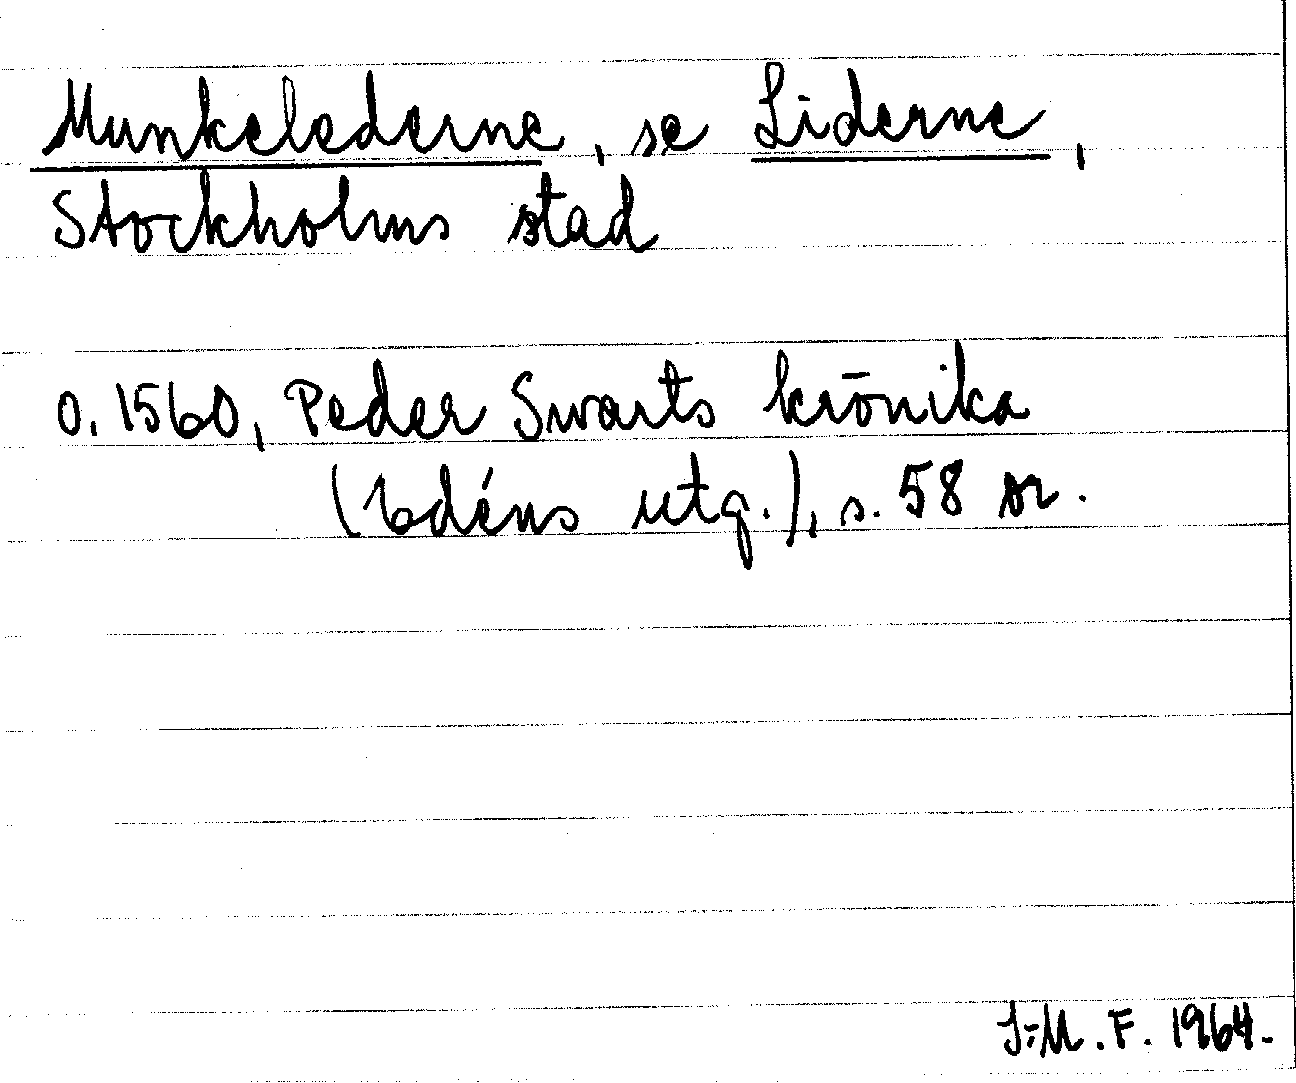 Munkelederne, se Liderne,
Stockholms stad
o. 1560, Peder Swarts krönika
(Edéns utg.), s. 58 or.
I-M. F. 1964.